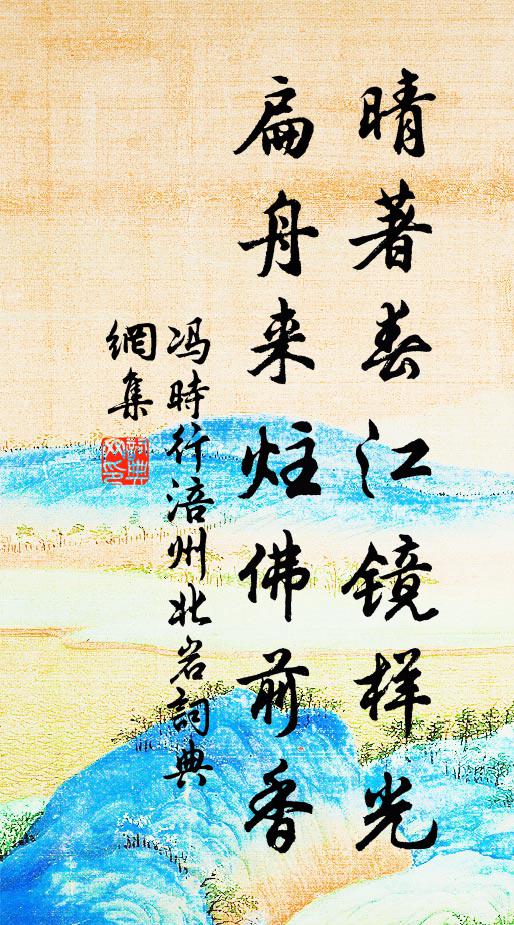 晴著春江镜样光
扁舟来炷佛前香
冯時行涪州北岩詞典
網集